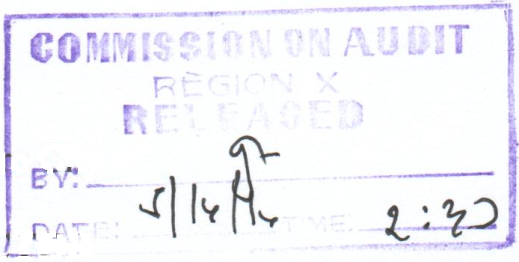 COMMISSION ON AUDIT
REGION X
RELEASED
BY:
DATE: 5/14/14 TIME: 2:30